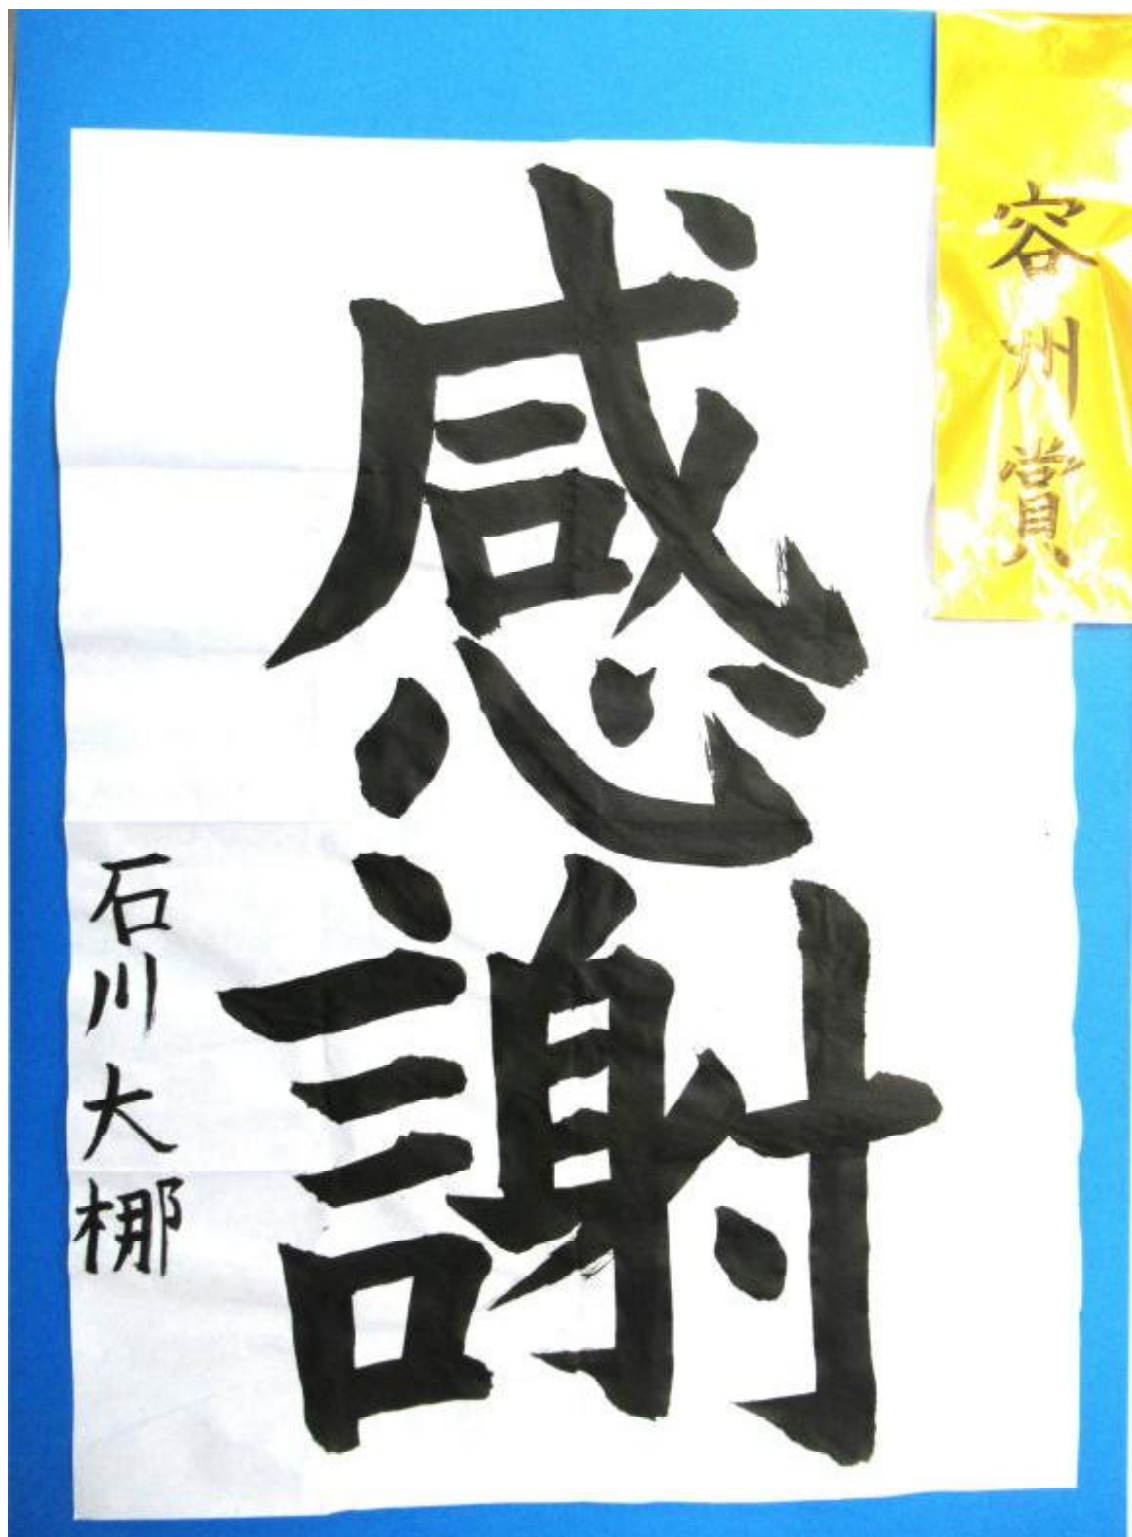 容州賞
感謝
石川大梛